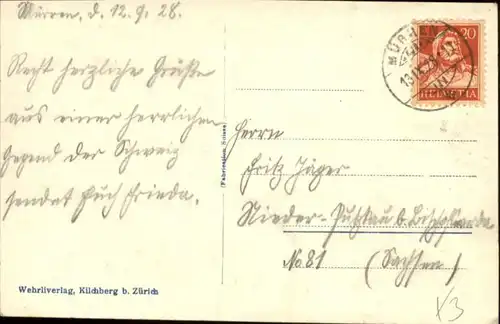 Mürren, d. 12.9.28.
Recht herzliche Grüße
aus einer herrlichen
Gegend der Schweiz
sendet Euch Frieda.
Wehrliverlag, Kilchberg b. Zürich
(Fabrication Suisse)
MÜRREN
13.IX.28
20
HELVETIA
Herrn
Fritz Jäger
Nieder-Putzkau b. Bischofswerda
No 81 (Sachsen)